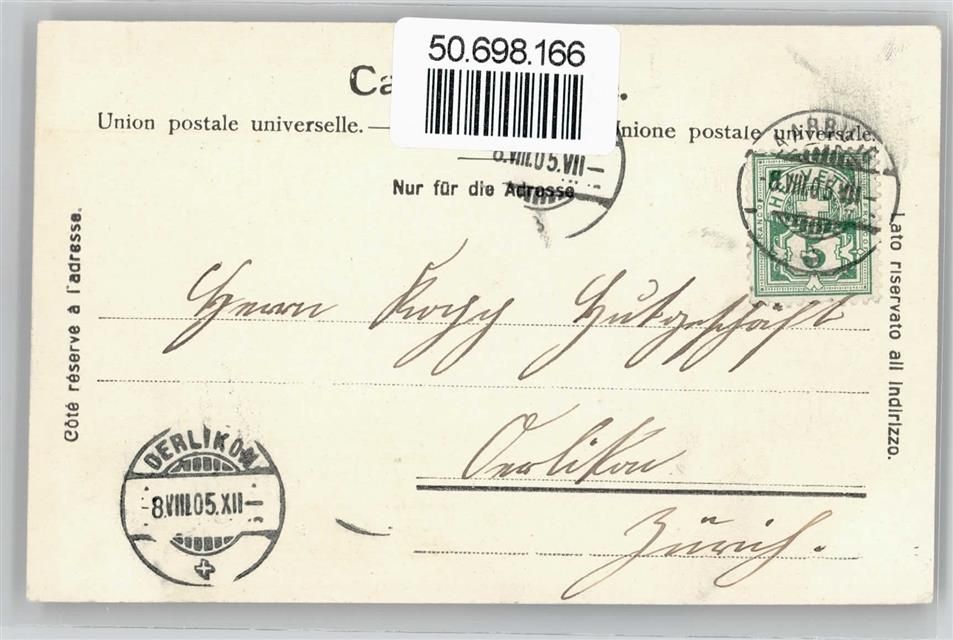 50.698.166
Ca
Union postale universelle. — Unione postale universale.
8.VIII.05.VII—
Nur für die Adresse
AARBURG
8.VIII.05.VII
HELVETIA
FRANCO
5
Côté réservé à l'adresse.
Lato riservato all indirizzo.
Herrn Hutgeschäft
Oerlikon
Zürich.
OERLIKON
8.VIII.05.XII—